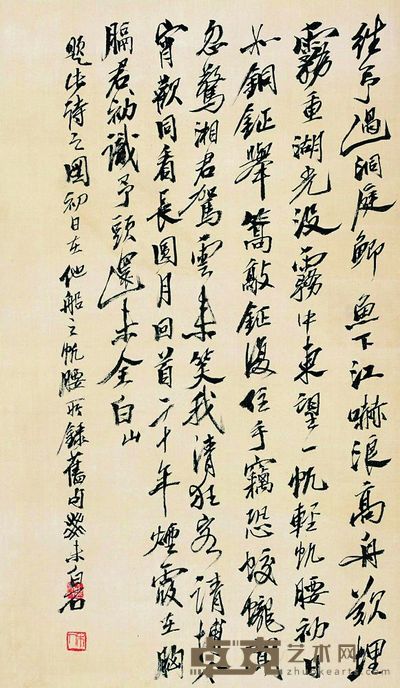 往予過洞庭鯽魚下江嚇浪高舟欲埋
霧重湖光沒霧中東望一帆輕帆腰初日
如銅鉦舉篙敲鉦復住手竊恐蛟龍
忽驚湘君駕雲來笑我清狂客請博今
宵歡同看長圓月回首二十年煙霞在胸
膈君初識予頭還未全白山
題此詩之圖初日在他船之帆腰所錄舊句癸未白石
艺术网